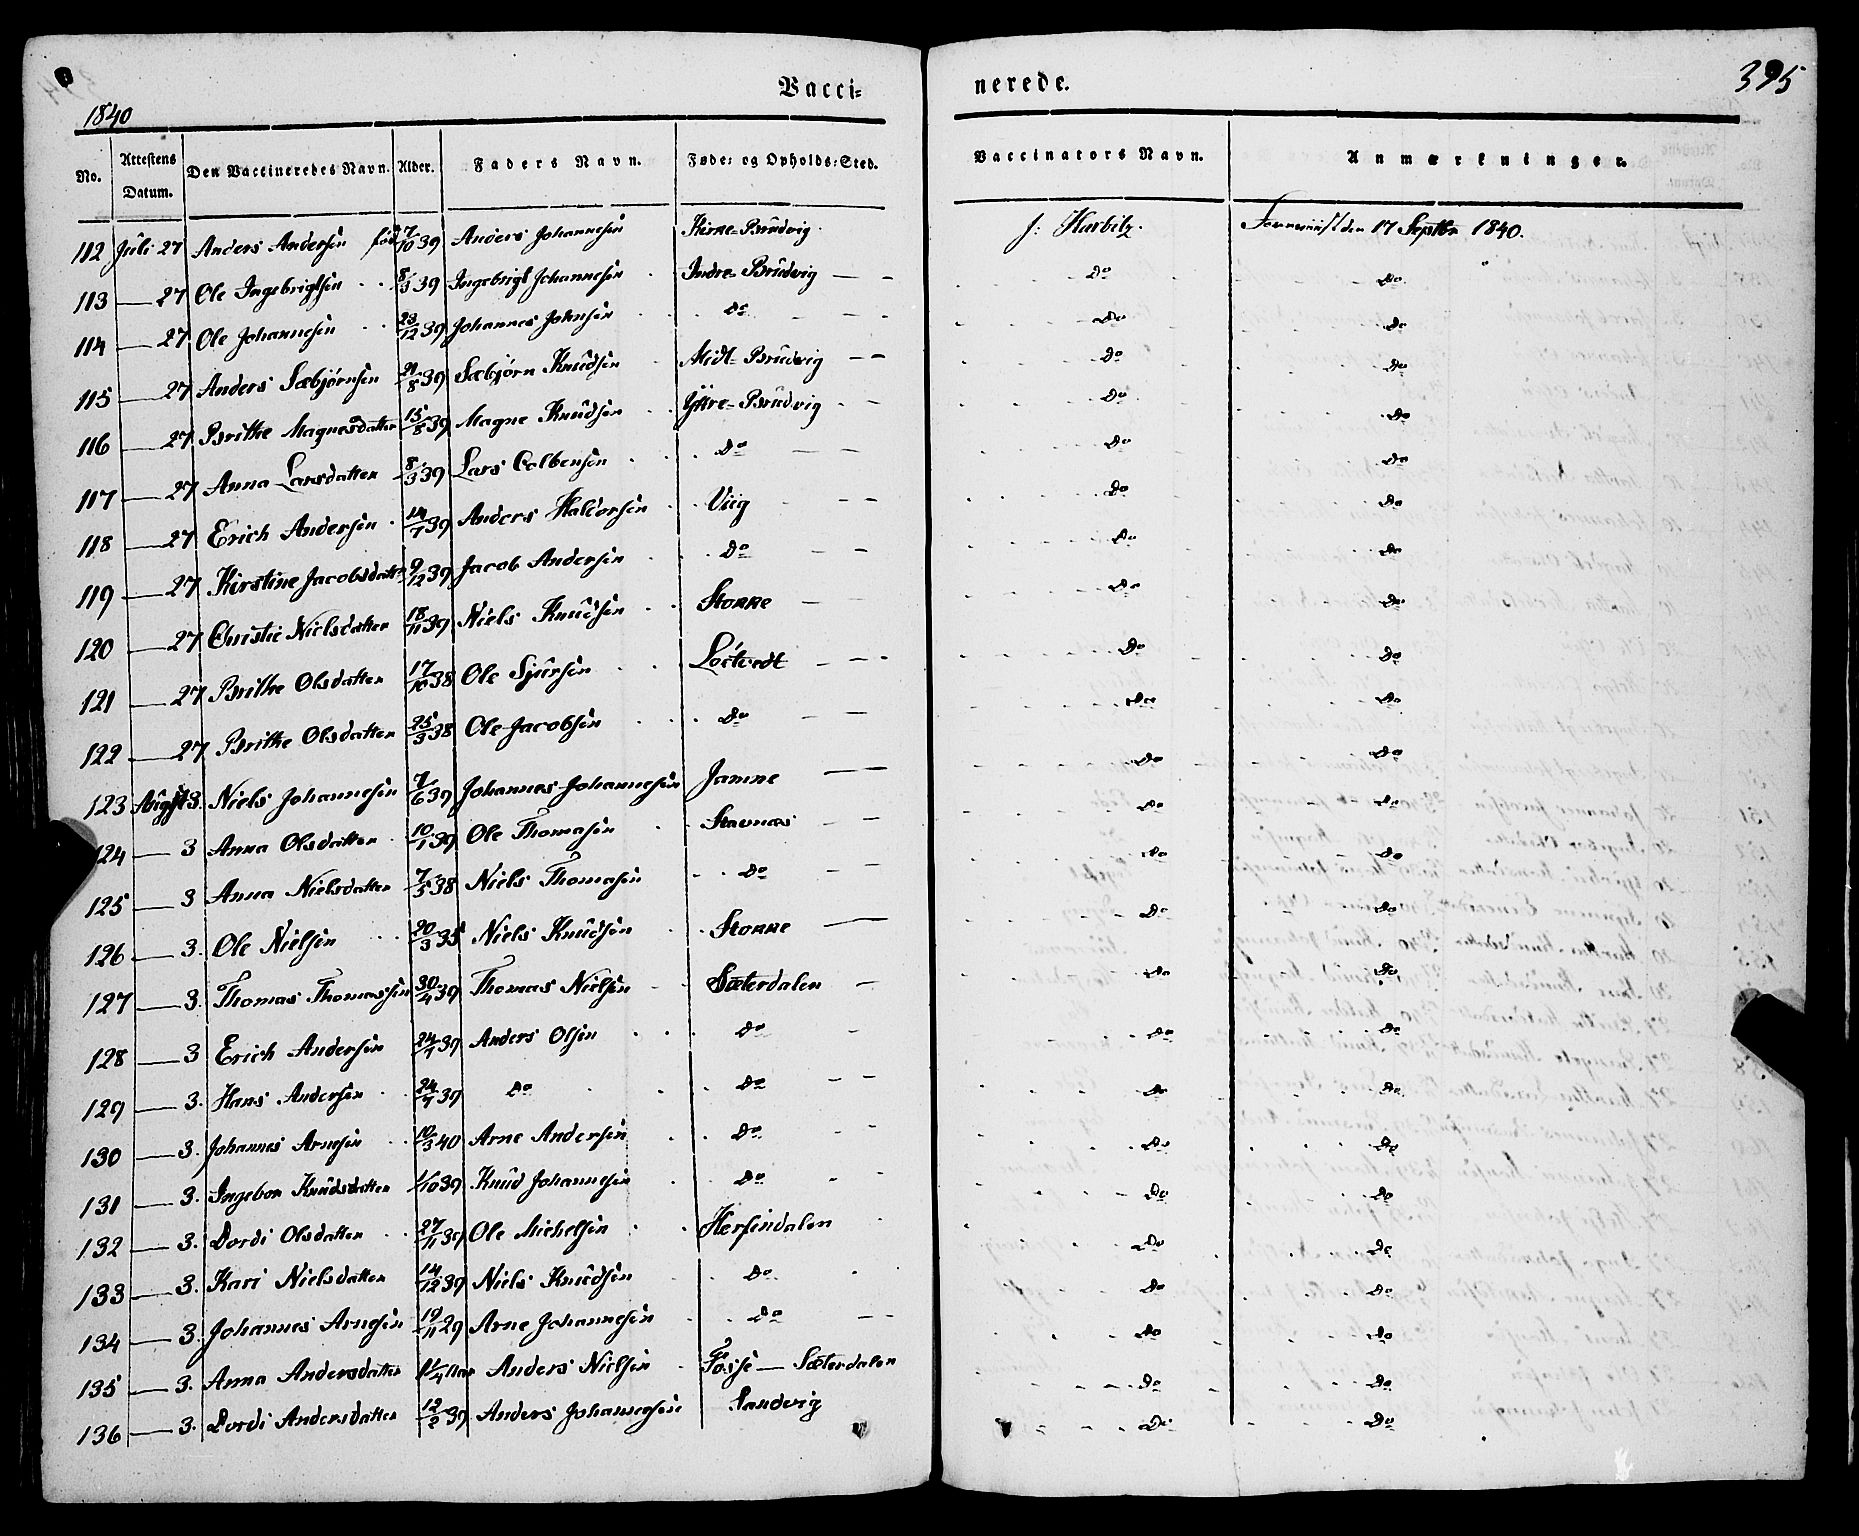 Vacci- nerede. 395
1840
No. Attestens Datum. Den Vaccineredes Navn. Alder. Faders Navn. Føde- og Opholds-Sted. Vaccinators Navn. Anmærkninger.
112 Juli 27 Anders Andersen fød 7/10 39 Anders Johannesen Kirke-Brudvig. J: Harbitz. den 17 Septbr 1840.
113 — 27 Ole Ingebrigtsen 8/3 39 Ingebrigt Johannesen Indre-Brudvig — Do Do
114 — 27 Ole Johannesen 23/12 39 Johannes Johnsen Do Do Do
115 — 27 Anders Sæbjørnsen 21/8 39 Sæbjørn Knudsen Midt-Brudvig — Do Do
116 — 27 Brithe Magnesdatter 15/8 39 Magne Knudsen Yttre-Brudvig Do Do
117 — 27 Anna Larsdatter 8/3 39 Lars Colbensen Do Do Do
118 — 27 Erich Andersen 14/7 39 Anders Haldorsen Viig Do Do
119 — 27 Kirstine Jacobsdatter 9/12 39 Jacob Andersen Do Do Do
120 — 27 Christie Nielsdatter 18/11 39 Niels Knudsen Storke Do Do
121 — 27 Brithe Olsdatter 17/10 38 Ole Sjursen Loctvedt Do Do
122 — 27 Brithe Olsdatter 25/3 38 Ole Jacobsen Do Do Do
123 August 3. Niels Johannesen 7/6 39 Johannes Johannesen Jamne Do Do
124 — 3 Anna Olsdatter 10/1 39 Ole Thomasen Stavnæs Do Do
125 — 3 Anna Nielsdatter 7/5 38 Niels Thomasen Do Do Do
126 — 3. Ole Nielsen 20/3 35 Niels Knudsen Storke Do Do
127 — 3. Thomas Thomassen 30/4 39 Thomas Nielsen Sæterdalen Do Do
128 — 3 Erich Andersen 24/7 39 Anders Olsen Do Do Do
129 — 3. Hans Andersen 24/7 39 Do Do Do Do
130 — 3. Johannes Arnesen 10/3 40 Arne Andersen Do Do Do
131 — 3. Ingebor Knudsdatter 1/10 39 Knud Johannesen Do Do Do
132 — 3. Dordi Olsdatter 27/11 39 Ole Michelsen Herfindalen Do Do
133 — 3. Kari Nielsdatter 14/12 39 Niels Knudsen Do Do Do
134 — 3. Johannes Arnesen 19/11 29 Arne Johannesen Do Do Do
135 — 3. Anna Andersdatter Anders Nielsen Fosse — Sæterdalen Do Do
136 — 3. Dordi Andersdatter 12/2 39 Anders Johannesen Sandvig Do Do